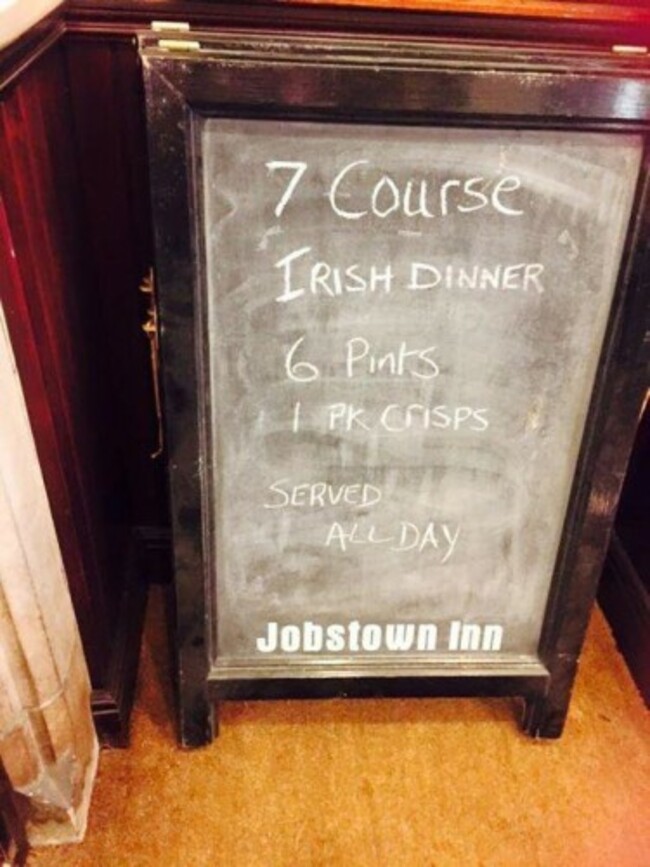 7 Course
IRISH DINNER
6 Pints
1 PK CrISPS
SERVED
ALL DAY
Jobstown Inn